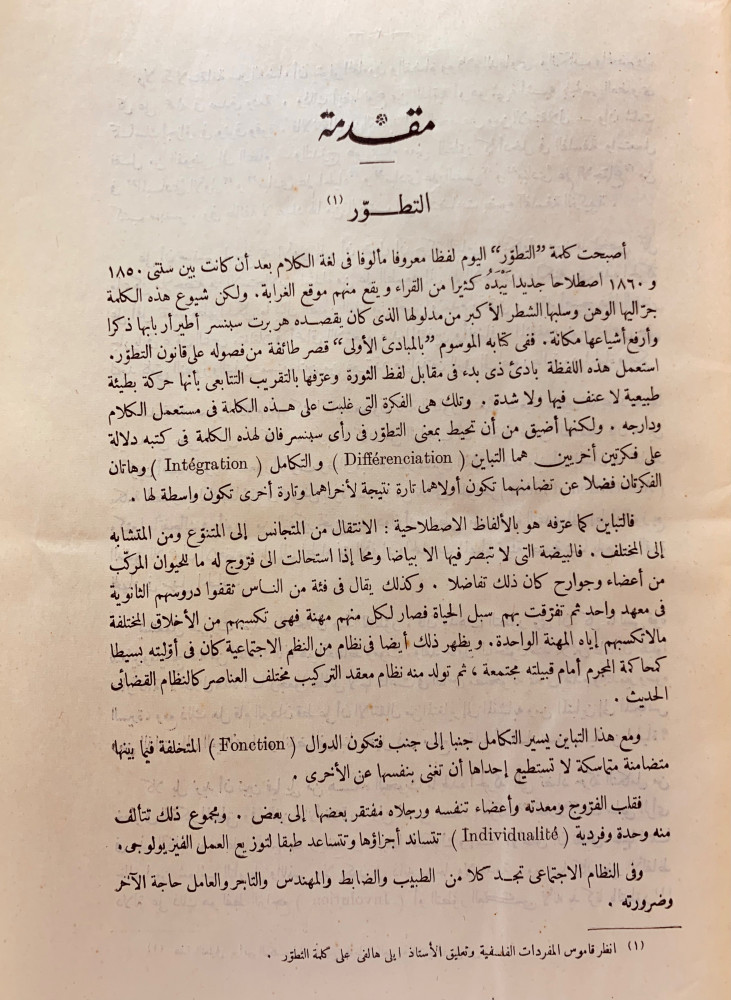 مقدمة
التطوّر (١)
أصبحت كلمة "التطوّر" اليوم لفظا معروفا مألوفا فى لغة الكلام بعد أن كانت بين سنتى ١٨٥٠
و ١٨٦٠ اصطلاحا جديدا يَبْدَهُ كثيرا من القراء ويقع منهم موقع الغرابة. ولكن شيوع هذه الكلمة
جرّ اليها الوهن وسلبها الشطر الأكبر من مدلولها الذى كان يقصده هربرت سبنسر أطير أربابها ذكرا
وأرفع أشياعها مكانة. ففى كتابه الموسوم "بالمبادئ الأولى" قصر طائفة من فصوله على قانون التطوّر.
استعمل هذه اللفظة بادئ ذى بدء فى مقابل لفظ الثورة وعرّفها بالتقريب التتابعى بأنها حركة بطيئة
طبيعية لا عنف فيها ولا شدة . وتلك هى الفكرة التى غلبت على هذه الكلمة فى مستعمل الكلام
ودارجه . ولكنها أضيق من أن تحيط بمعنى التطوّر فى رأى سبنسر فان لهذه الكلمة فى كتبه دلالة
على فكرتين أخريين هما التباين ( Différenciation ) و التكامل ( Intégration ) وهاتان
الفكرتان فضلا عن تضامنهما تكون أولاهما تارة نتيجة لأخراهما وتارة أخرى تكون واسطة لها .
فالتباين كما عرّفه هو بالألفاظ الاصطلاحية : الانتقال من المتجانس إلى المتنوّع ومن المتشابه
إلى المختلف . فالبيضة التى لا تبصر فيها الا بياضا ومحا إذا استحالت الى فرّوج له ما للحيوان المركّب
من أعضاء وجوارح كان ذلك تفاضلا . وكذلك يقال فى فئة من الناس ثقفوا دروسهم الثانوية
فى معهد واحد ثم تفرّقت بهم سبل الحياة فصار لكل منهم مهنة فهى تكسبهم من الأخلاق المختلفة
مالاتكسبهم إياه المهنة الواحدة. ويظهر ذلك أيضا فى نظام من النظم الاجتماعية كان فى أوّليته بسيطا
كمحاكمة المجرم أمام قبيلته مجتمعة ، ثم تولد منه نظام معقد التركيب مختلف العناصر كالنظام القضائى
الحديث .
ومع هذا التباين يسير التكامل جنبا إلى جنب فتكون الدوال ( Fonction ) المتخلفة فيما بينها
متضامنة متماسكة لا تستطيع إحداها أن تغنى بنفسها عن الأخرى .
فقلب الفرّوج ومعدته وأعضاء تنفسه ورجلاه مفتقر بعضها إلى بعض . ومجموع ذلك تتألف
منه وحدة وفردية ( Individualité ) تتساند أجزاؤها وتتساعد طبقا لتوزيع العمل الفيزيولوجى.
وفى النظام الاجتماعى تجد كلا من الطبيب والضابط والمهندس والتاجر والعامل حاجة الآخر
وضرورته .
(١) انظر قاموس المفردات الفلسفية وتعليق الأستاذ ايلى هالفى على كلمة التطوّر .